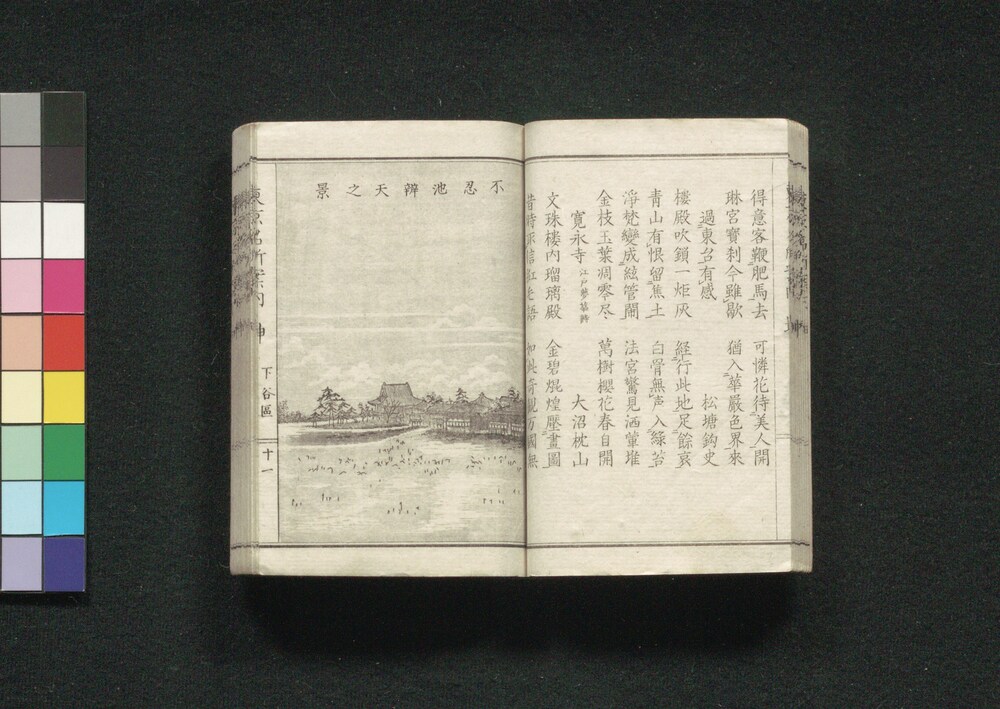 得意客鞭肥馬去 可憐花待美人開
琳宮寶刹今雖歇 猶入華嚴色界來
過東台有感 松塘釣史
樓殿吹鎖一炬灰 経行此地足餘哀
青山有恨留焦土 白骨無声入緑苔
淨梵變成絃管閙 法宮驚見酒葷堆
金枝玉葉凋零尽 萬樹櫻花春自開
寛永寺 大沼枕山
文珠樓內瑠璃殿 金碧焜煌壓畫圖
昔時 如此奇観万國無
不忍池辨天之景
東京名所案内 坤
下谷區
十一